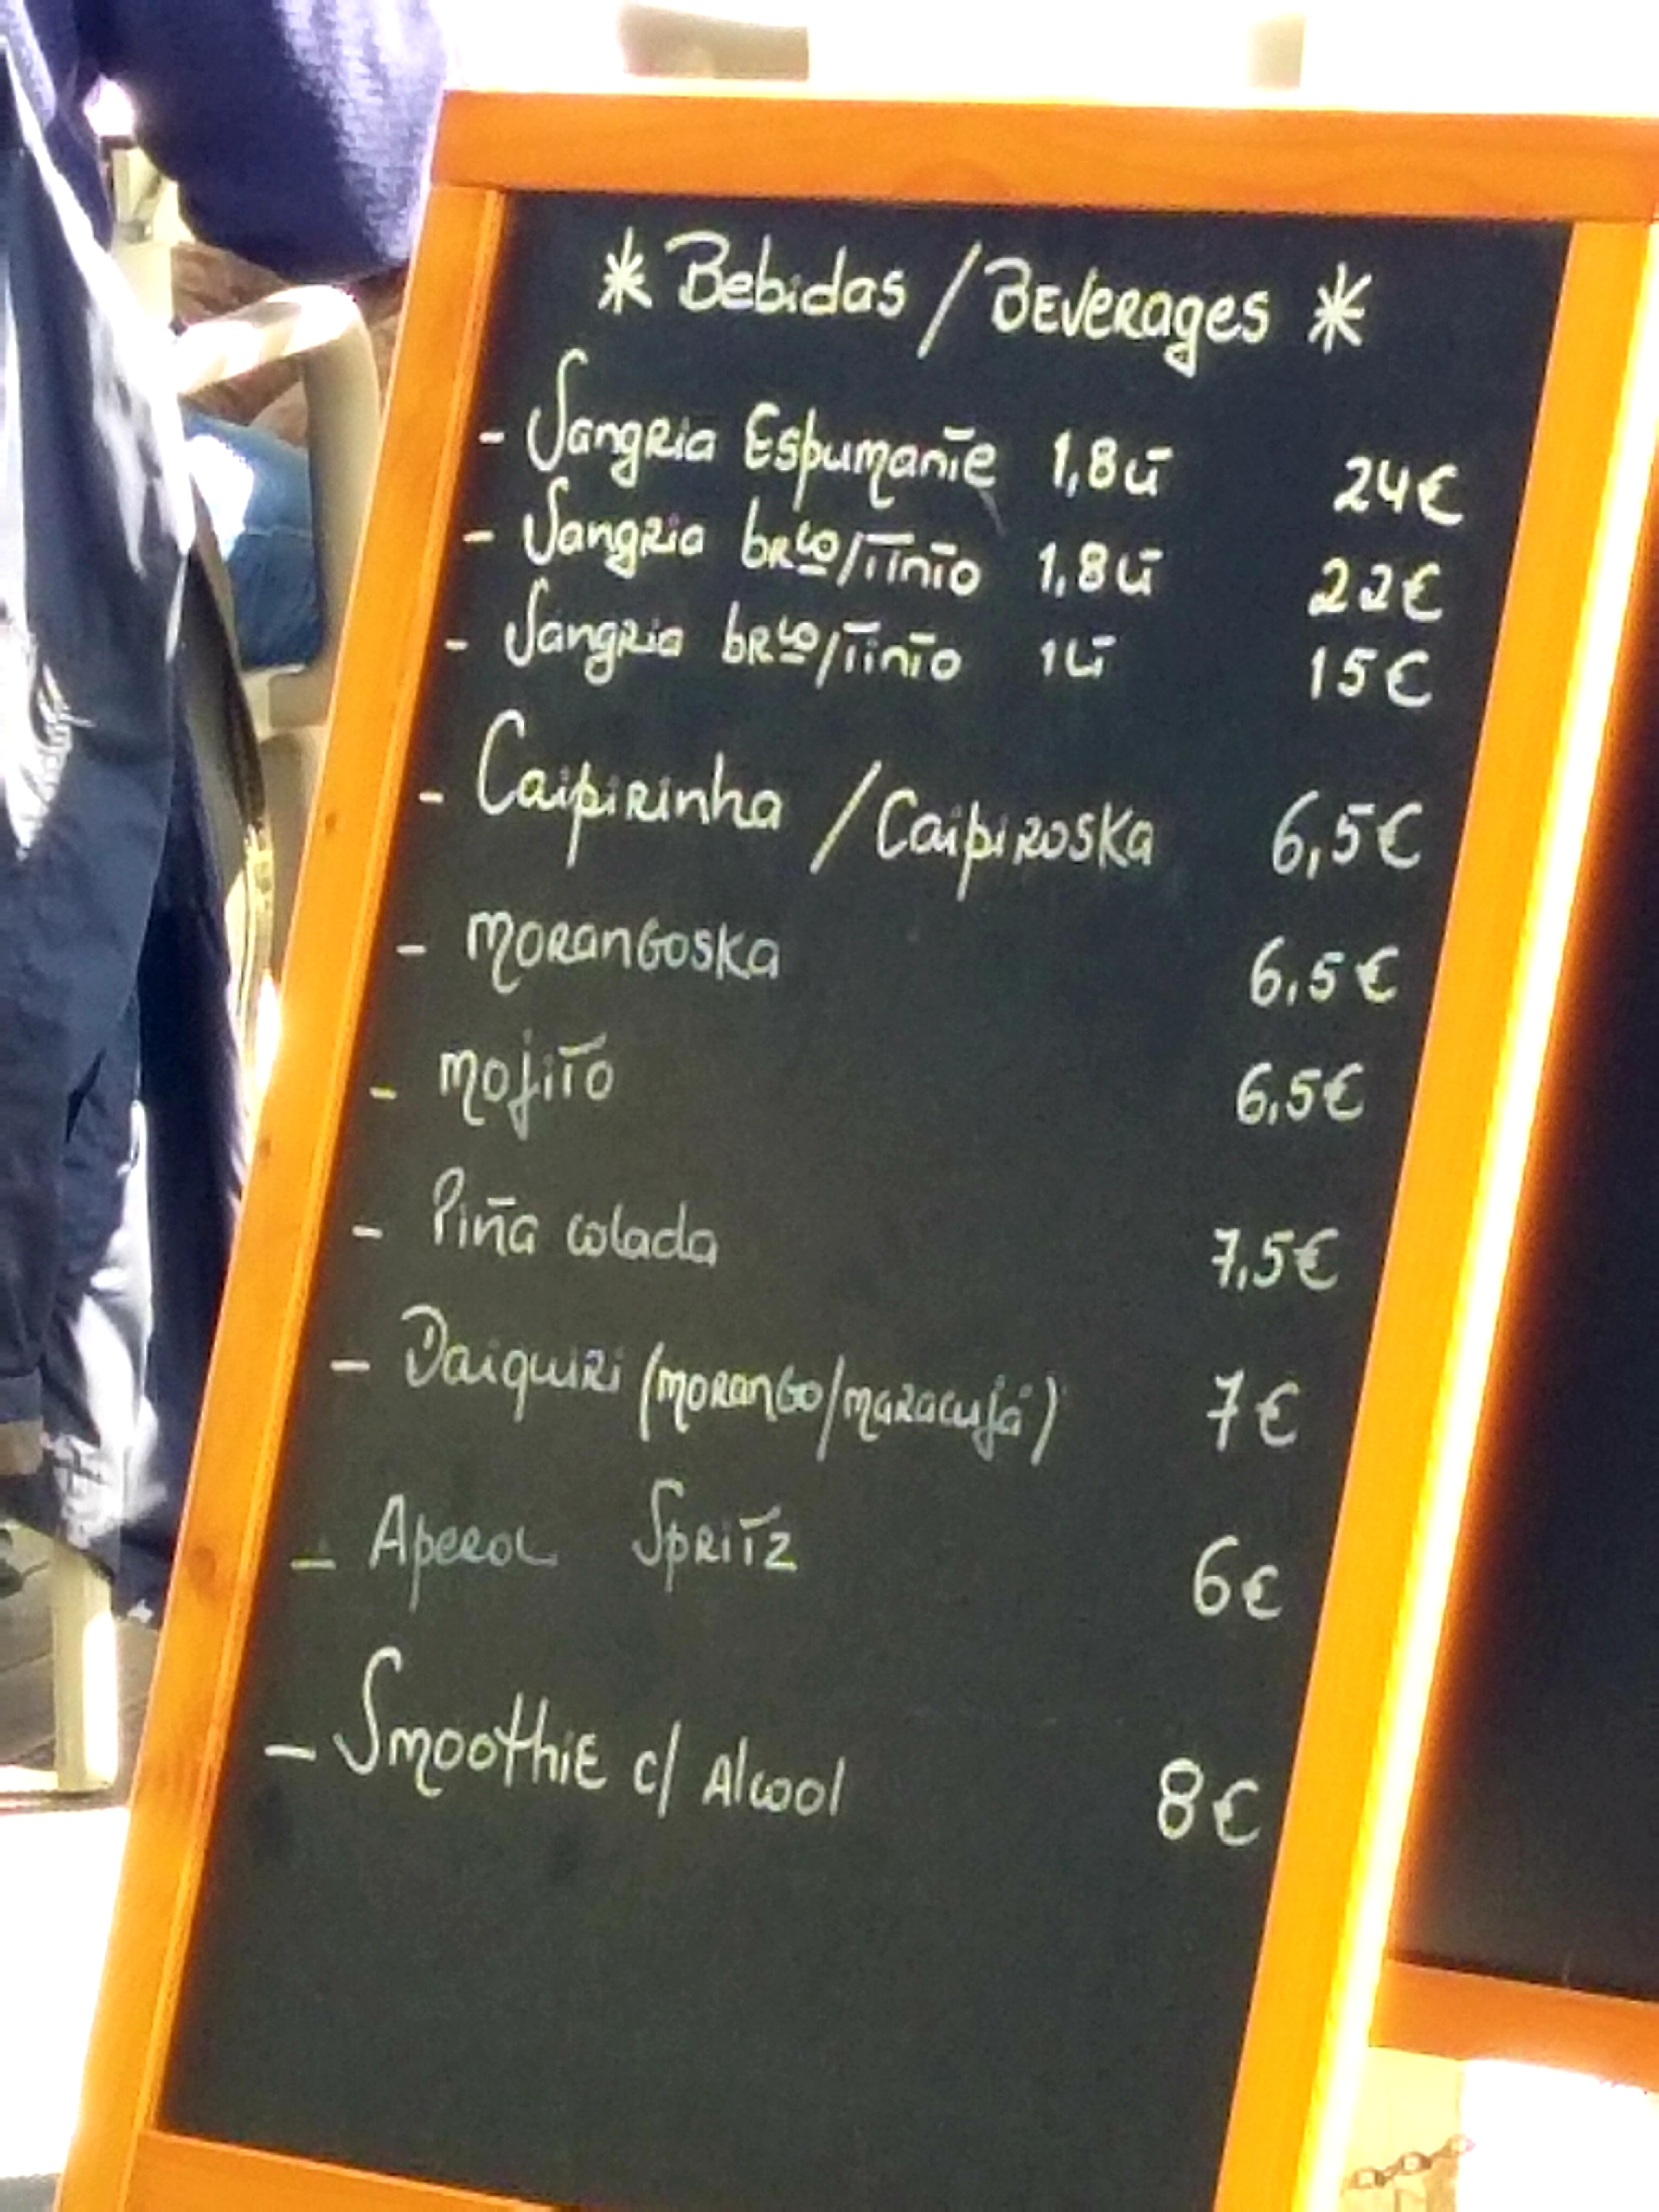 * Bebidas / BEVERAGES *
- Sangria Espumante 1,8Lt 24€
- Sangria brco/Tinto 1,8Lt 22€
- Sangria brco/Tinto 1Lt 15€
- Caipirinha / Caipiroska 6,5€
- Morangoska 6,5€
- Mojito 6,5€
- Piña colada 7,5€
- Daiquiri (morango/maracujá) 7€
- Aperol Spritz 6€
- Smoothie c/ Alcool 8€